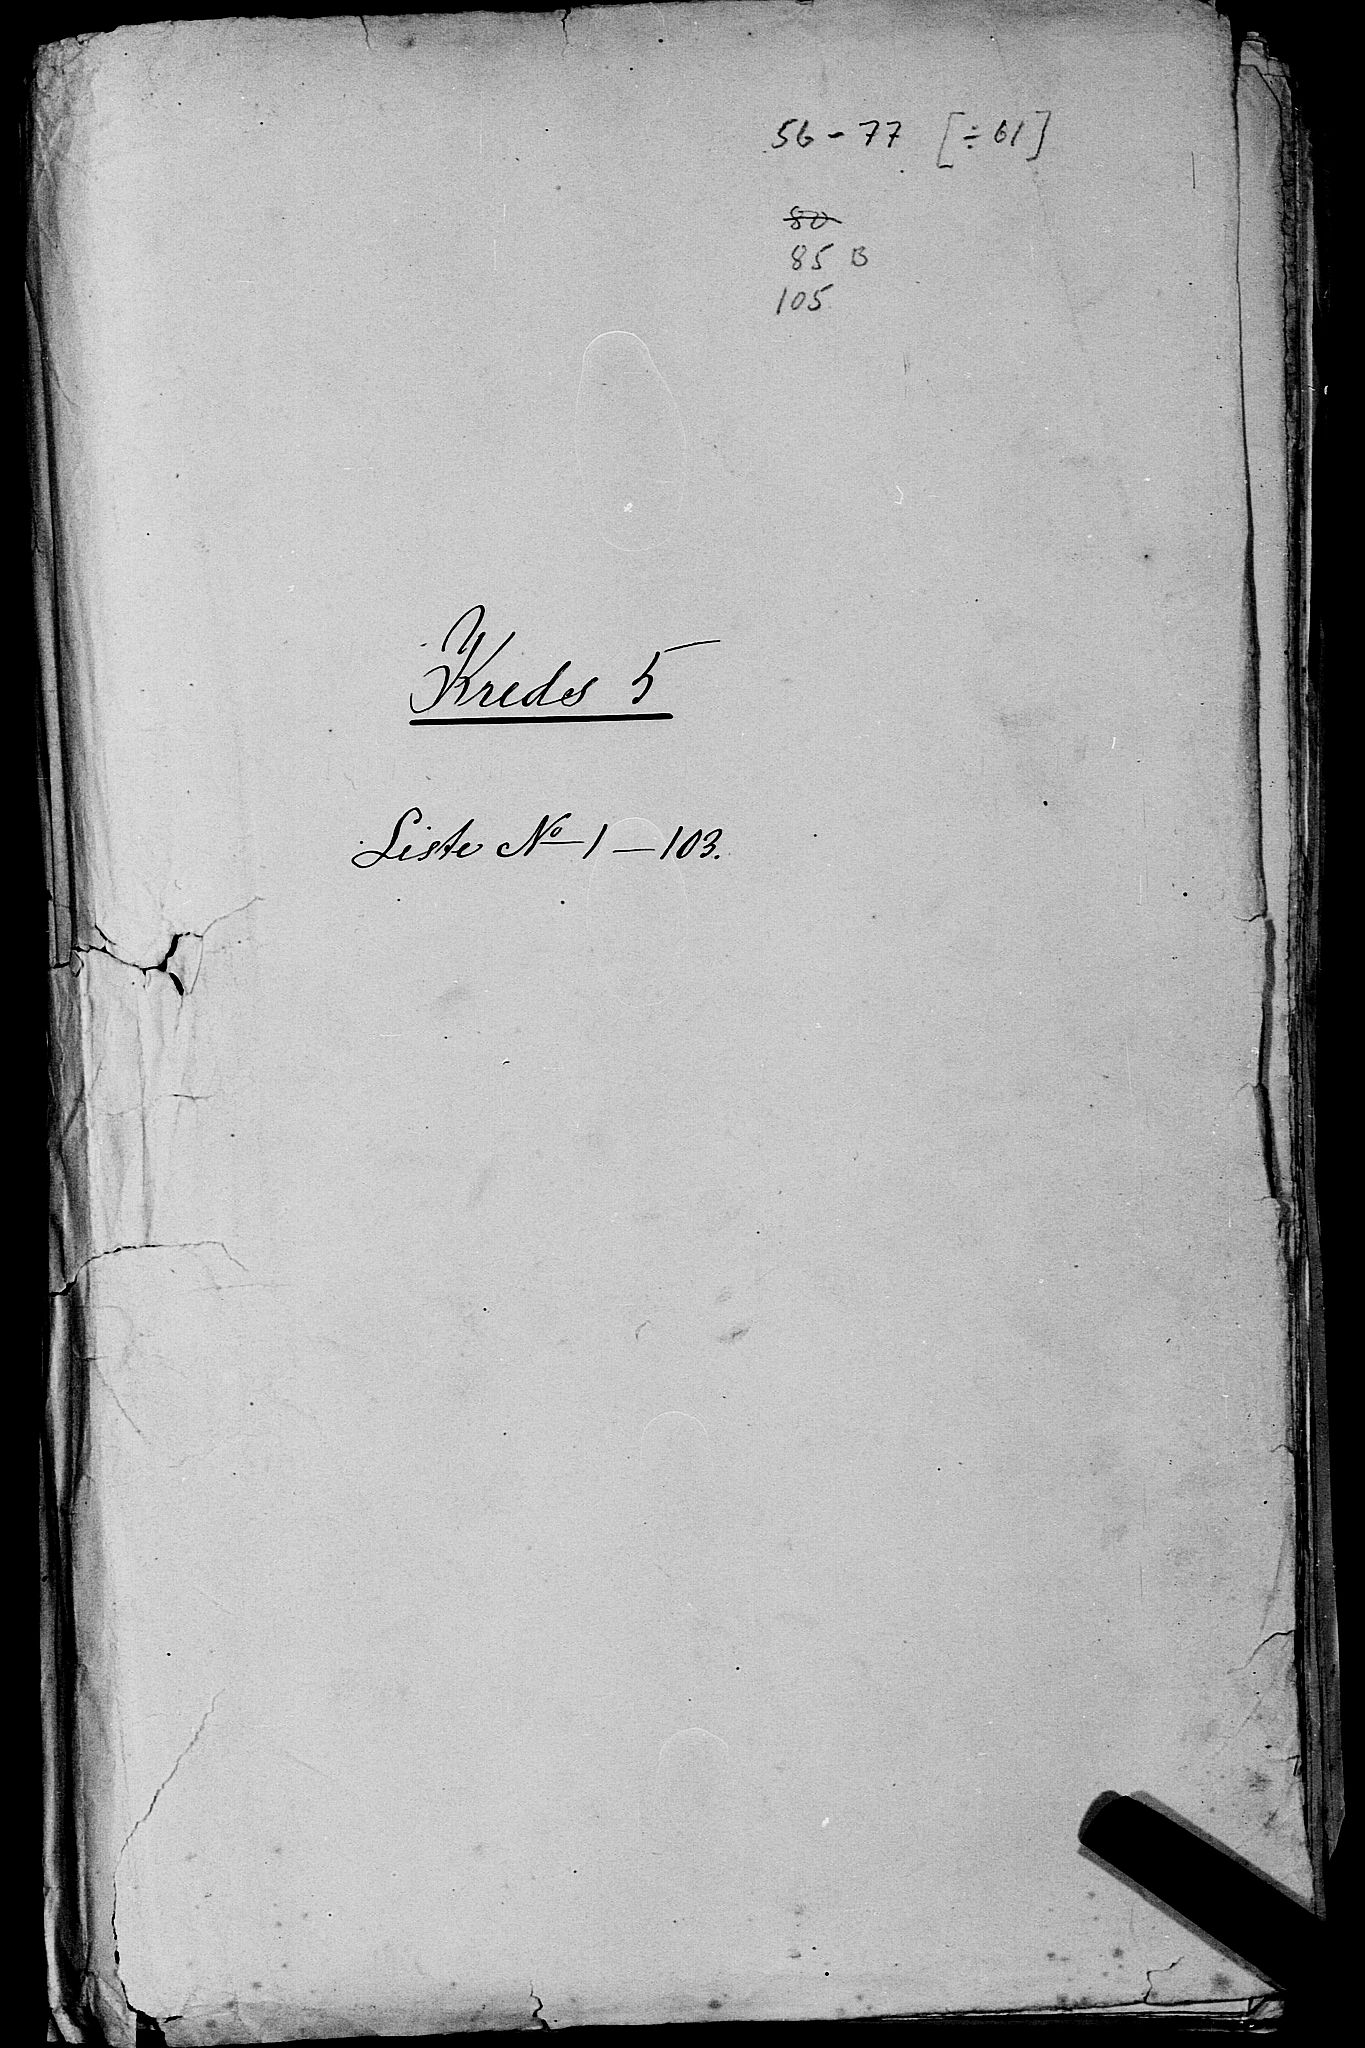 56 - 77 [÷ 61]
80
85 B
105
Kreds 5
Liste No 1 - 103.